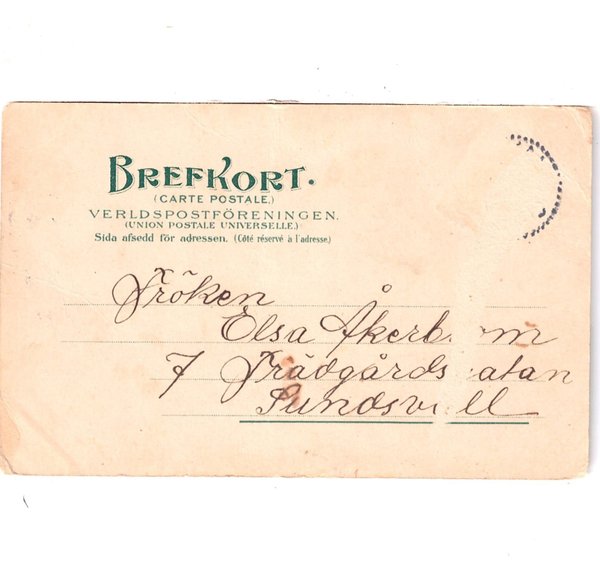 BREFKORT.
(CARTE POSTALE.)
VERLDSPOSTFÖRENINGEN.
(UNION POSTALE UNIVERSELLE.)
Sida afsedd för adressen. (Côté réservé à l'adresse.)
Fröken
Elsa Åkerb om
7 Trädgårds atan
Sundsv ll